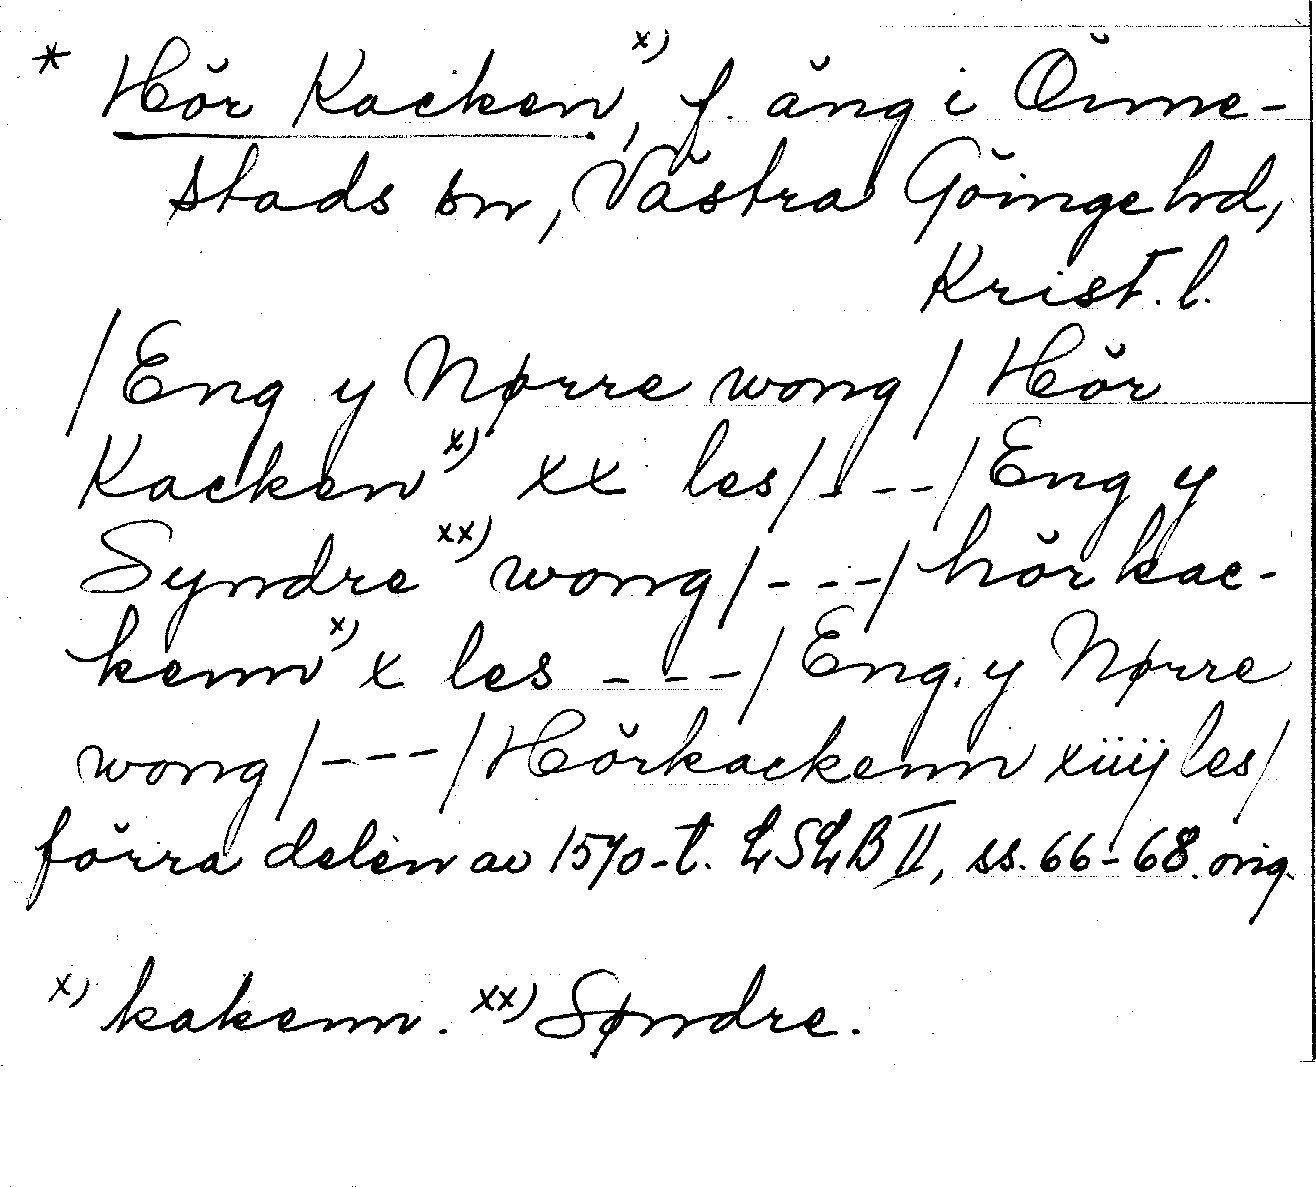 * Hör Kacken x), f. äng i Önne-
stads sn, Västra Göinge hd,
Krist. l.
/Eng y Nørre wong/Hör
Kacken x) xx les/---/Eng y
Syndre xx) wong/---/hörkac-
kenn x) x les ---/Eng. y Nørre
wong/---/Hörkackenn xiiij les/
förra delen av 1570-t. LSLB II, ss. 66-68. orig.
x) kakenn. xx) Søndre.